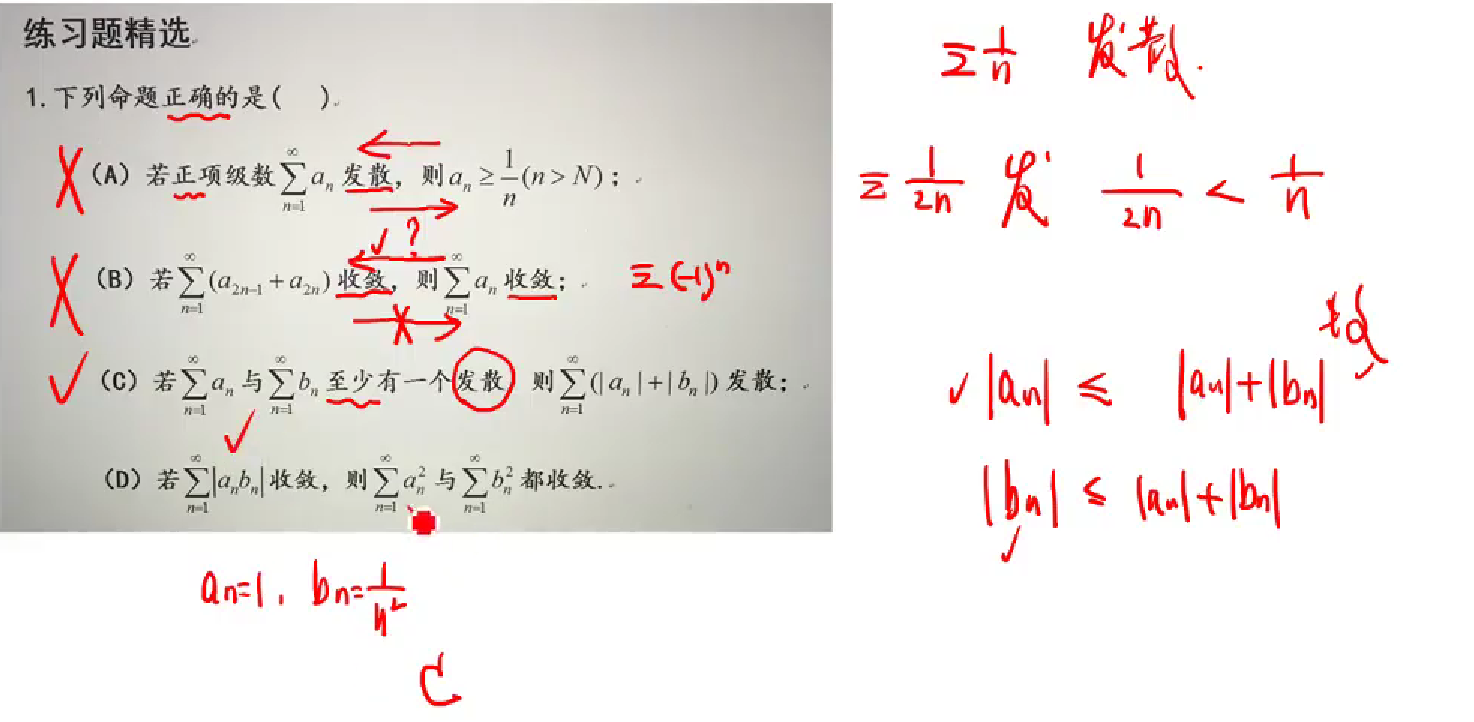 练习题精选
1.下列命题正确的是(    ).
(A) 若正项级数 $\sum_{n=1}^{\infty} a_n$ 发散，则 $a_n \geq \frac{1}{n}(n > N)$；
? 
(B) 若 $\sum_{n=1}^{\infty}(a_{2n-1}+a_{2n})$ 收敛，则 $\sum_{n=1}^{\infty} a_n$ 收敛； $\sum(-1)^n$
(C) 若 $\sum_{n=1}^{\infty} a_n$ 与 $\sum_{n=1}^{\infty} b_n$ 至少有一个发散，则 $\sum_{n=1}^{\infty}(|a_n|+|b_n|)$ 发散；
(D) 若 $\sum_{n=1}^{\infty}|a_n b_n|$ 收敛，则 $\sum_{n=1}^{\infty} a_n^2$ 与 $\sum_{n=1}^{\infty} b_n^2$ 都收敛.
$a_n=1, b_n=\frac{1}{n^2}$
C
$\sum\frac{1}{n}$ 发散.
$\sum\frac{1}{2n}$ 发 $\frac{1}{2n} < \frac{1}{n}$
散
$|a_n| \leq |a_n|+|b_n|$
$|b_n| \leq |a_n|+|b_n|$